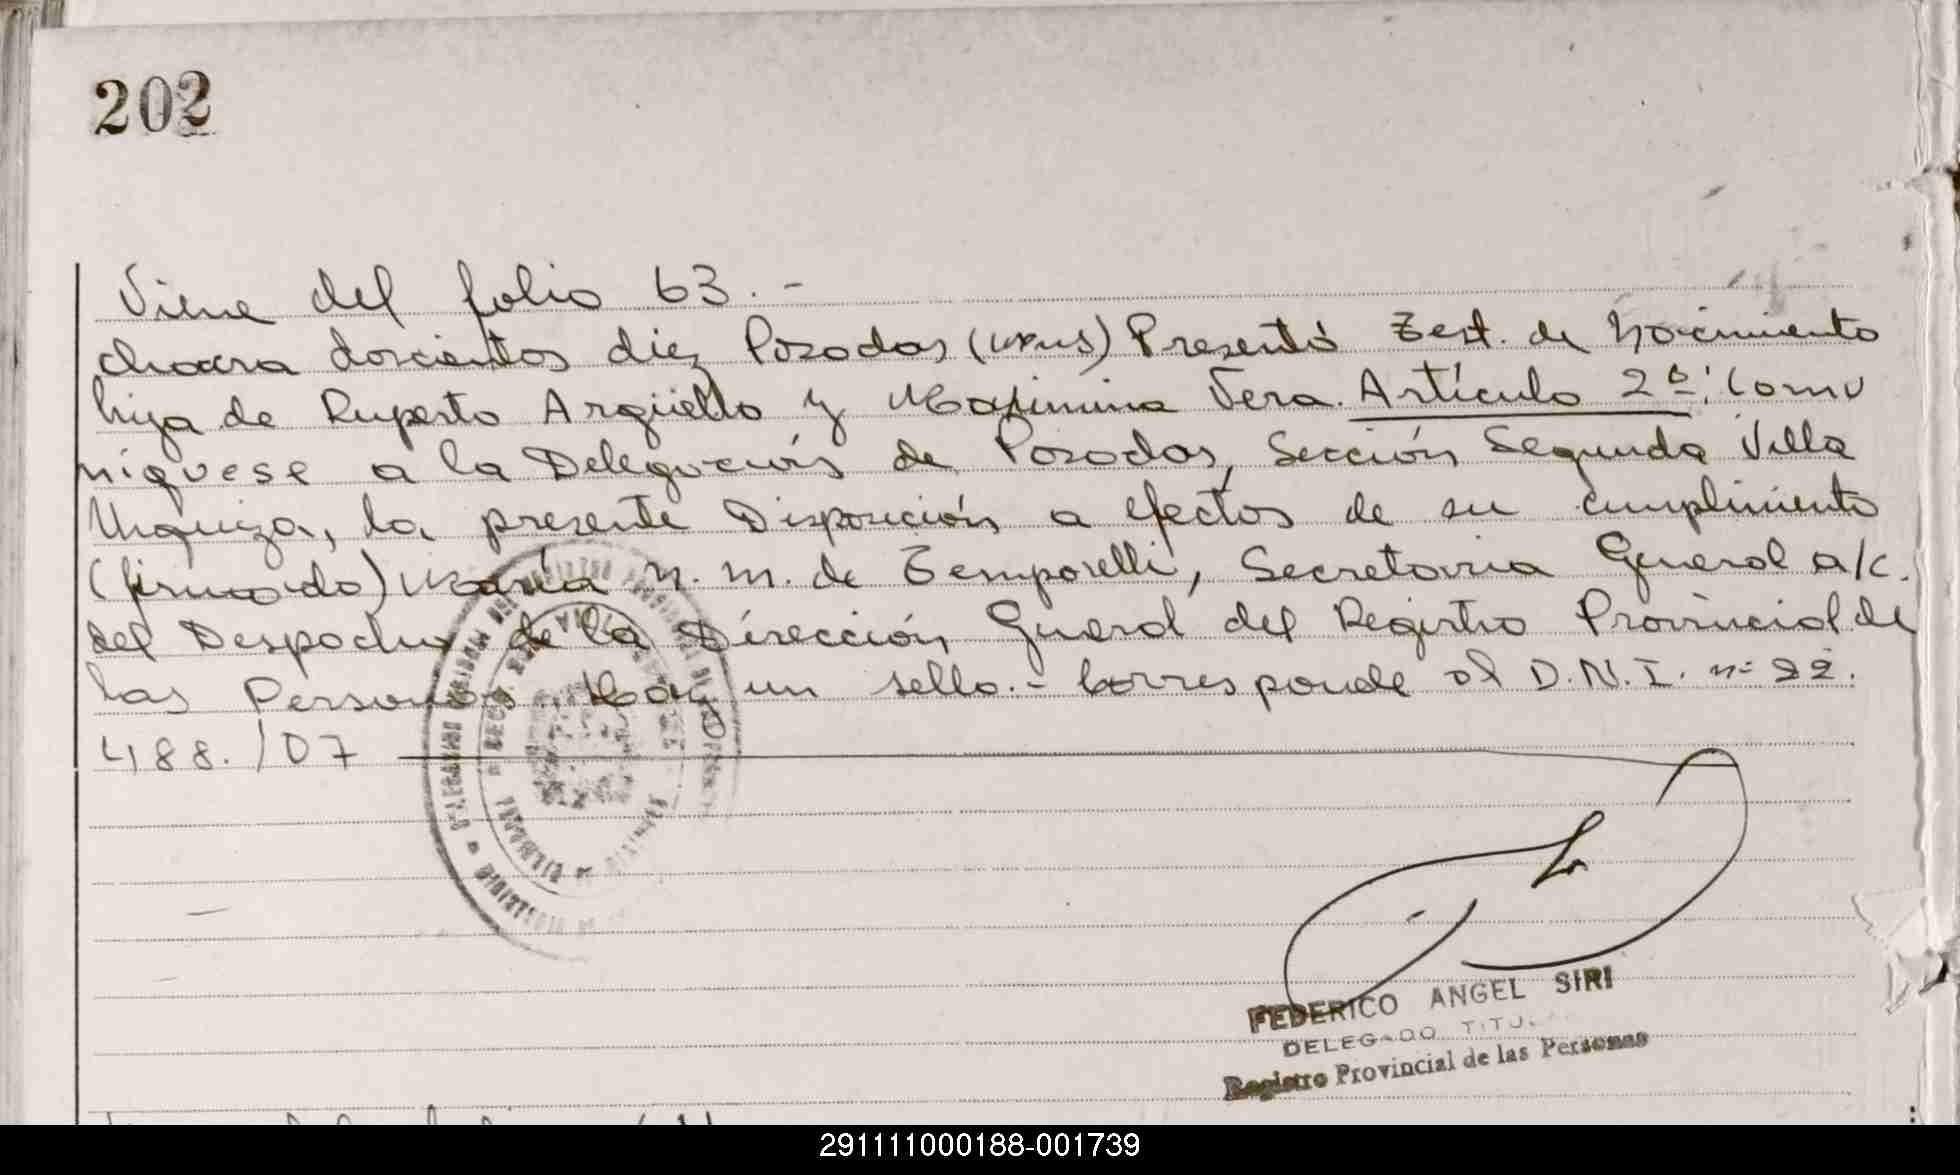 202
Viene del folio 63. -
chacra doscientos diez Posadas (Mnes) Presentó Test. de Nacimiento
hija de Ruperto Argüello y Maximina Vera. Artículo 2º: Comu
níquese a la Delegación de Posadas, Sección Segunda Villa
Urquiza, la presente Disposición a efectos de su cumplimiento
(firmado) María N. M. de Temporelli, Secretaria General a/c.
del Despacho de la Dirección General del Registro Provincial de
las Personas. Hay un sello. - Corresponde al D.N.I. nº 22.
488. /07
FEDERICO ANGEL SIRI
DELEGADO TITULAR
Registro Provincial de las Personas
291111000188-001739